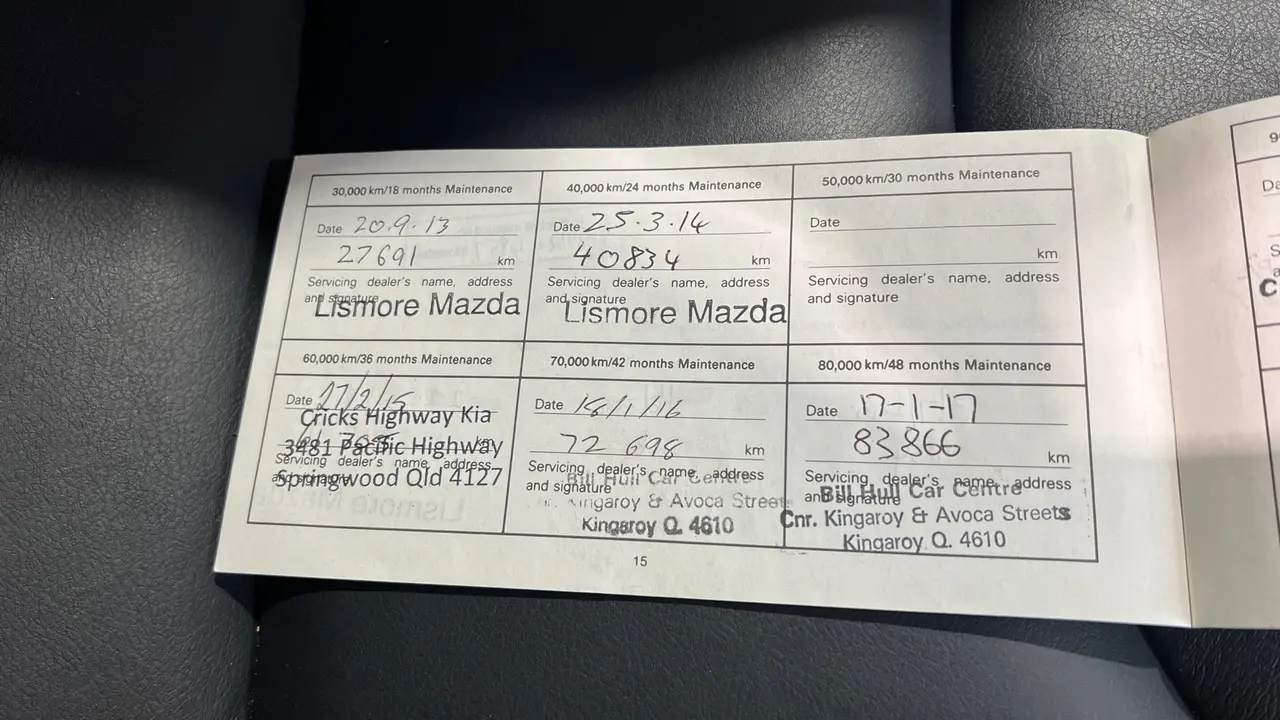 30,000 km/18 months Maintenance
Date 20.9.13
27691 km
Servicing dealer's name, address
and signature
Lismore Mazda
40,000 km/24 months Maintenance
Date 25.3.14
40834 km
Servicing dealer's name, address
and signature
Lismore Mazda
50,000 km/30 months Maintenance
Date
km
Servicing dealer's name, address
and signature
60,000 km/36 months Maintenance
Date 27/2/15
Cricks Highway Kia
km
3481 Pacific Highway
Servicing dealer's name, address
and signature
Springwood Qld 4127
70,000 km/42 months Maintenance
Date 18/1/16
72 698 km
Servicing dealer's name, address
and signature
Bill Hull Car Centre
Kingaroy & Avoca Streets
Kingaroy Q. 4610
80,000 km/48 months Maintenance
Date 17-1-17
83866 km
Servicing dealer's name, address
and signature
Bill Hull Car Centre
Cnr. Kingaroy & Avoca Streets
Kingaroy Q. 4610
15